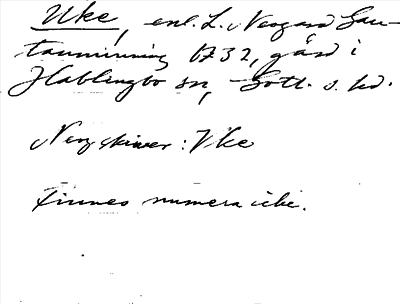 Uke, enl. L. Neogard Gau-
tauminning 1732, gård i
Hablingbo sn, Gotl. s. hd.
Neog skriver: Vke
Finnes numera icke.